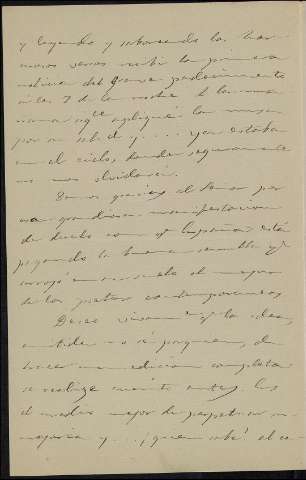 y leyendo y saboreando los her-
mosos versos recibí la primera
noticia del grave padecimiento
a las 7 de la noche. A la ma-
ñana sgte apliqué la misa
por su salud y .... ya estaba
en el cielo, donde seguramente
no nos olvidará.
Demos gracias al Señor por
esa grandiosa manifestación
de duelo con q. España está
pagando la buena semilla q.
arrojó en su suelo el mejor
de los poetas contemporáneos
Deseo vivamte q. la idea,
emitida no sé por quien, de
hacer una edición completa
se realize cuanto antes. Es
el medio mejor de perpetuar su
memoria y ...., quien sabe! el co-